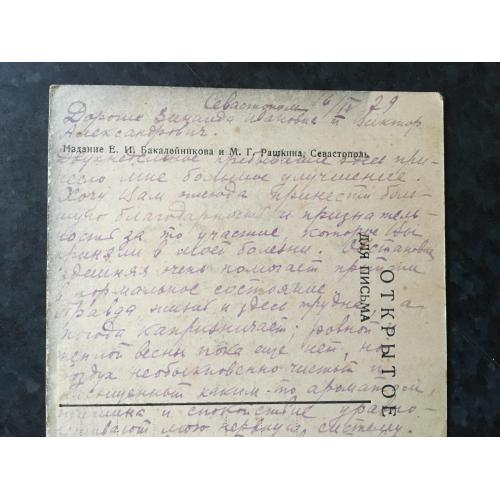 Севастополь 6/IV 29
Дорогие Зинаида Ивановна и Виктор
Александрович.
Издание Е. И. Бакалейникова и М. Г. Рашкина, Севастополь
Двухнедельное пребывание здесь при-
несло мне большое улучшение.
Хочу Вам отсюда принести боль-
шую благодарность и признатель-
ность за то участие, которое Вы
приняли в моей болезни. Обстановка
здешняя очень помогает придти
в нормальное состояние.
Правда жизнь и здесь трудна, а
погода капризничает: ровной
теплой весны пока еще нет, но
воздух необыкновенно чистый и
насыщенный каким-то ароматом,
тишина и спокойствие
мою нервную систему.
ОТКРЫТОЕ
ДЛЯ ПИСЬМА